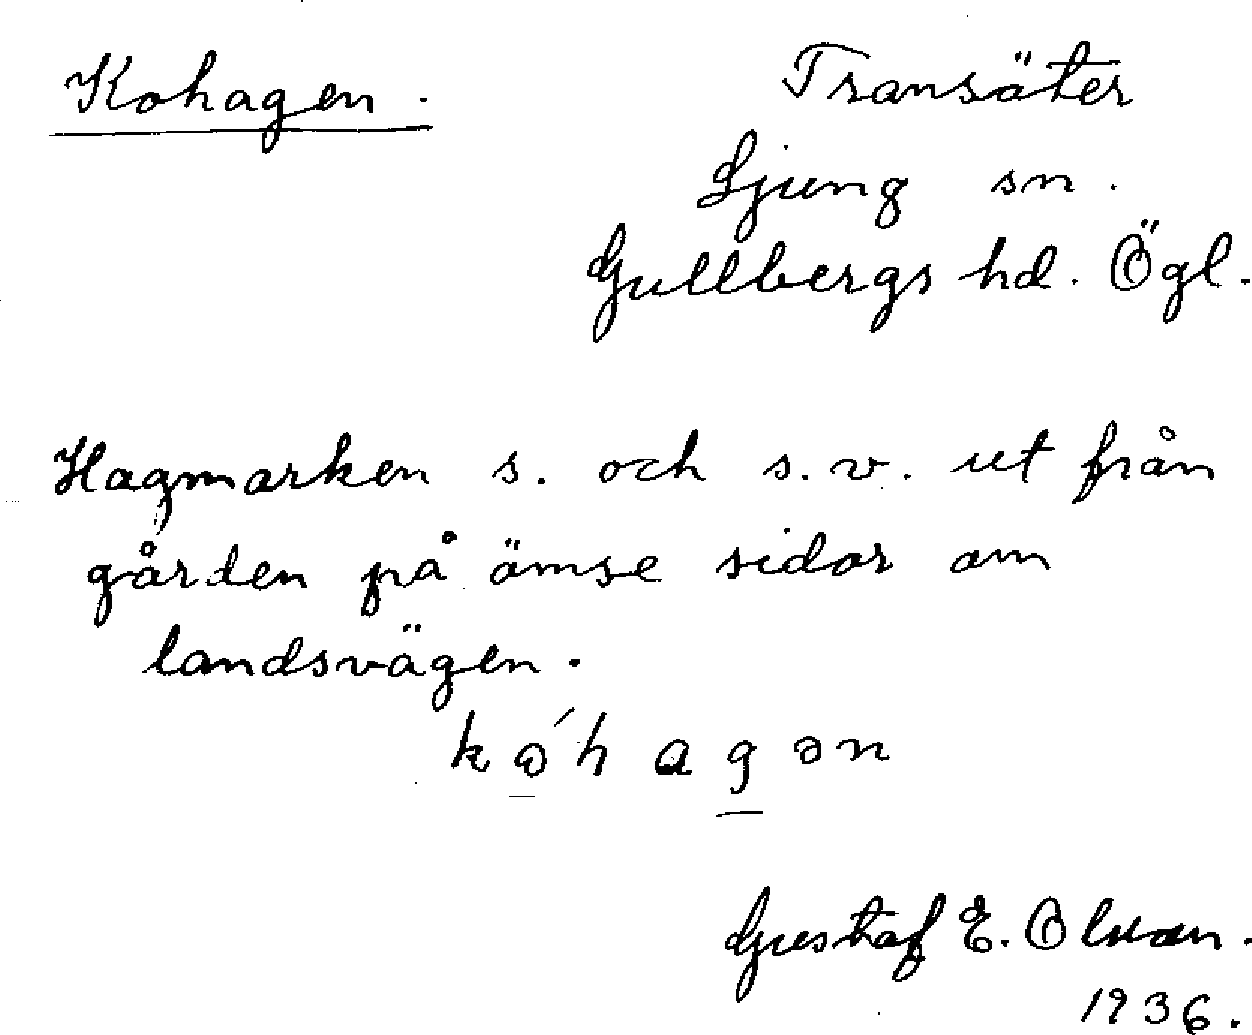 Kohagen.
Transäter
Ljung sn.
Gullbergs hd. Ögl.
Hagmarken s. och s.v. ut från
gården på ömse sidor om
landsvägen.
Gustaf E. Olson.
1936.